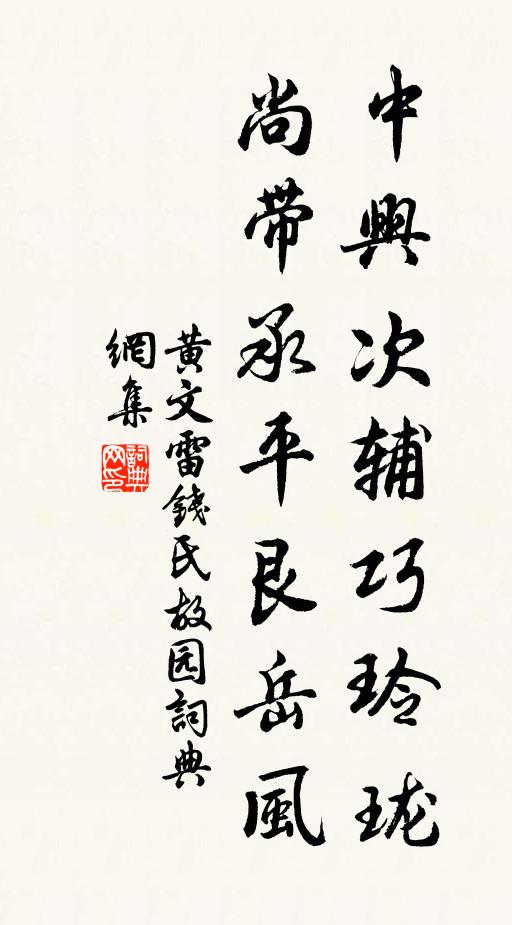 中興次辅巧玲珑
尚带承平艮岳風
黄文雷錢氏故园詞典
網集
詞典
网印